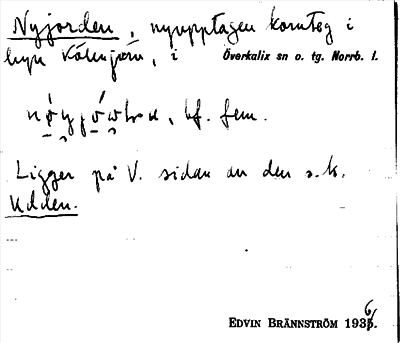 Nyjorden, nyupptagen kornteg i
byn Kölmjärv, i Överkalix sn o. tg. Norrb. l.
bf. fem.
Ligger på V. sidan av den s.k.
Udden.
EDVIN BRÄNNSTRÖM 1936.